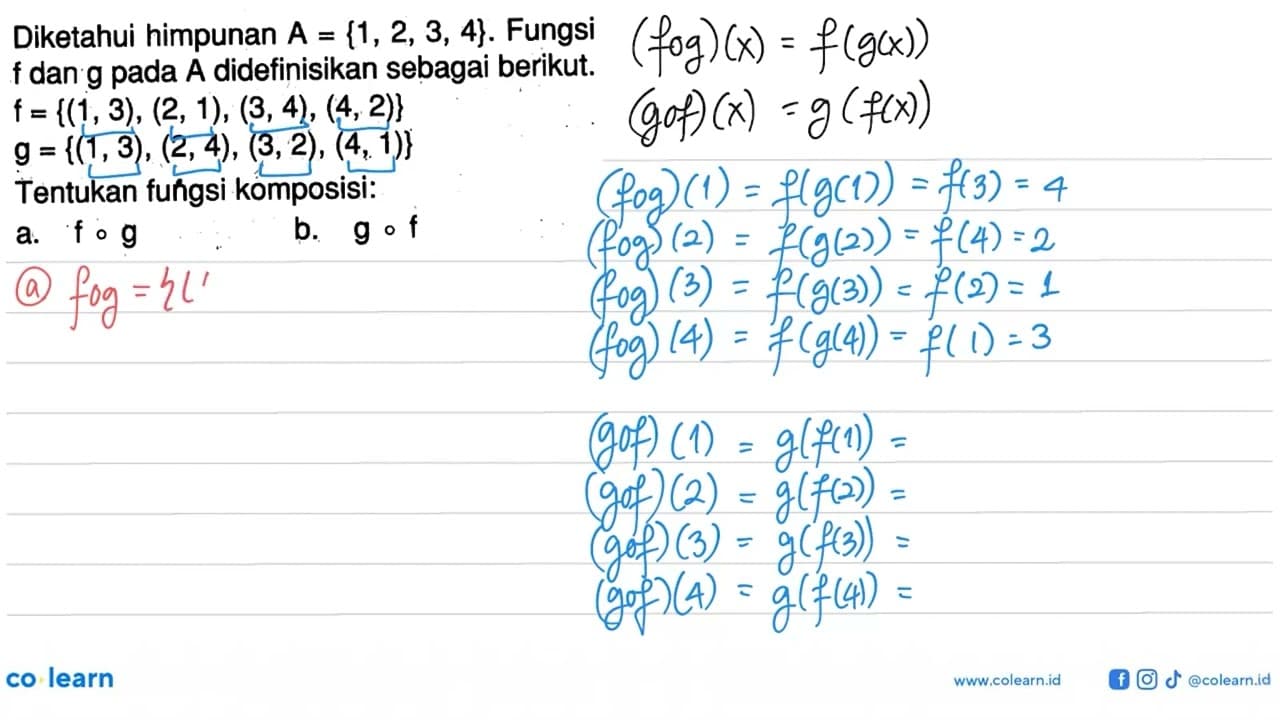 Diketahui himpunan A = {1, 2, 3, 4}. Fungsi
f dan g pada A didefinisikan sebagai berikut.
f = {(1, 3), (2, 1), (3, 4), (4, 2)}
g = {(1, 3), (2, 4), (3, 2), (4, 1)}
Tentukan fungsi komposisi:
a. f ∘ g b. g ∘ f
(fog)(x) = f(g(x))
(gof)(x) = g(f(x))
ⓐ fog = {(1
(fog)(1) = f(g(1)) = f(3) = 4
(fog)(2) = f(g(2)) = f(4) = 2
(fog)(3) = f(g(3)) = f(2) = 1
(fog)(4) = f(g(4)) = f(1) = 3
(gof)(1) = g(f(1)) =
(gof)(2) = g(f(2)) =
(gof)(3) = g(f(3)) =
(gof)(4) = g(f(4)) =
co learn
www.colearn.id
@colearn.id